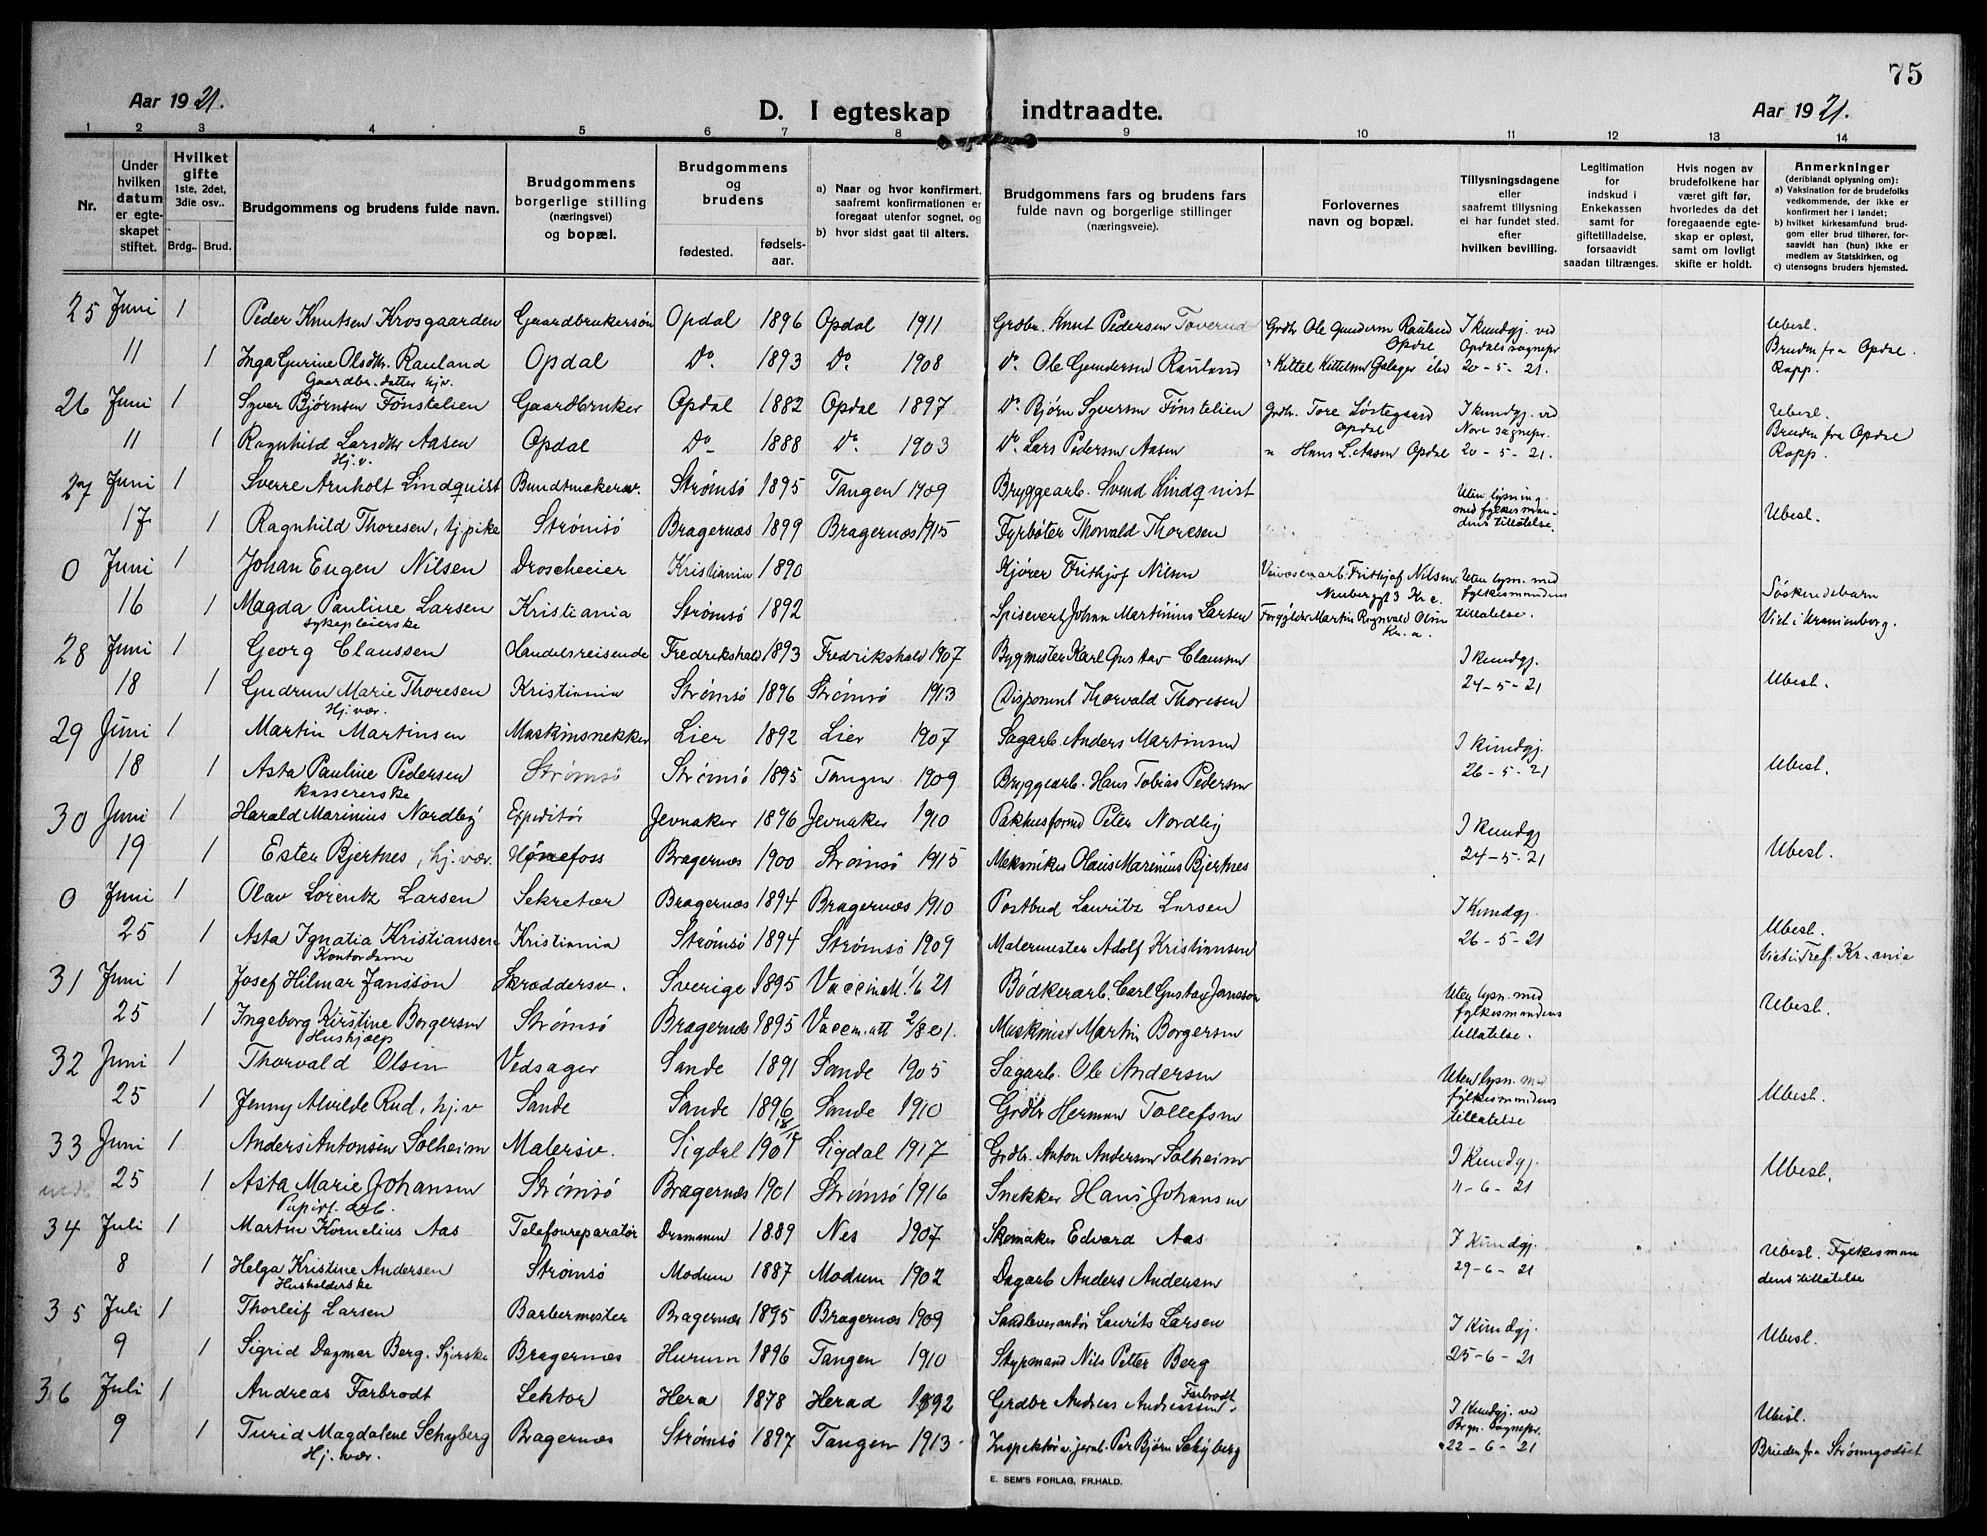 75
Aar 1921.
D. I egteskap indtraadte.
Aar 1921.
1 2 3 4 5 6 7 8 9 10 11 12 13 14
Nr.
Under hvilken datum er egteskapet stiftet.
Hvilket gifte 1ste, 2det, 3die osv..
Brdg.. Brud.
Brudgommens og brudens fulde navn.
Brudgommens borgerlige stilling (næringsvei) og bopæl.
Brudgommens og brudens
fødested. fødsels-aar.
a) Naar og hvor konfirmert, saafremt konfirmationen er foregaat utenfor sognet, og
b) hvor sidst gaat til alters.
Brudgommens fars og brudens fars fulde navn og borgerlige stillinger (næringsveie).
Forlovernes navn og bopæl.
Tillysningsdagene eller saafremt tillysning ei har fundet sted. efter hvilken bevilling.
Legitimation for indskud i Enkekassen samt for giftetilladelse, forsaavidt saadan tiltrænges.
Hvis nogen av brudefolkene har været gift før, hvorledes da det foregaaende egteskap er opløst, samt om lovligt skifte er holdt.
Anmerkninger (deriblandt oplysning om): a) Vaksination for de brudefolks vedkommende, der ikke er konfirmert her i landet; b) hvilket kirkesamfund brudgom eller brud tilhører, forsaavidt han (hun) ikke er medlem av Statskirken, og c) utensogns bruders hjemsted.
25 Juni 1 Peder Knutsen Krosgaarden Gaardbrukersøn Opdal 1896 Opdal 1911 Grdbr. Knut Pedersen Toverud Grdbr Ole Gundersn Rauland Opdal I kundgj. ved Ubesl.
11 1 Inga Gurine Olsdtr. Rauland Opdal Do 1893 Do. 1908 Do. Ole Gundersen Rauland " Kittel Kittelsen Opdals sognepr. 20-5-21. Bruden fra Opdal. Rapp.
Gaardbr. datter hj.v.
26 Juni 1 Syver Bjørnsen Fønstelien Gaardbruker Opdal 1882 Opdal 1897 Do. Bjørn Syversen Fønstelien Grdbr. Tore Løstegaard Opdal I kundgj. ved Ubesl.
11 1 Ragnhild Larsdtr Aasen Opdal Do 1888 Do. 1903 Do. Lars Pedersen Aasen " Hans L. Aasen Opdal Nore sognepr. 20-5-21. Bruden fra Opdal Rapp.
Hj.v.
27 Juni 1 Sverre Arnholt Lindquist Bundtmakersv. Strømsø 1895 Tangen 1909 Bryggearb. Svend Lindquist Uten lysning.
17 1 Ragnhild Thoresen, tj.pike Strømsø Bragernæs 1899 Bragernæs 1915 Fyrbøter Thorvald Thoresen med fylkesmandens tillatelse. Ubesl.
0 Juni 1 Johan Eugen Nilsen Droscheeier Kristiania 1890 Kjører Frithjof Nilsen Veivæsenarb. Frithjof Nilsen Kr.a. Uten lysn. med
16 1 Magda Pauline Larsen Kristiania Strømsø 1892 Spisevert Johan Martinius Larsen Forgylder Martin Ragnvald Olsen Kr.a. fylkesmandens tillatelse. Søskendebarn Viet i Uranienborg.
sykepleierske
28 Juni 1 Georg Claussen Handelsreisende Fredrikshald 1893 Fredrikshald 1907 Bygmester Karl Gustav Claussen I kundgj.
18 1 Gudrun Marie Thoresen Kristiania Strømsø 1896 Strømsø 1913 Disponent Thorvald Thoresen 24-5-21 Ubesl.
Hj. vær.
29 Juni 1 Martin Martinsen Maskinsnekker Lier 1892 Lier 1907 Sagarb. Anders Martinsen I kundgj.
18 1 Asta Pauline Pedersen Strømsø Strømsø 1895 Tangen 1909 Bryggearb. Hans Tobias Pedersen 26-5-21 Ubesl.
kassererske
30 Juni 1 Harald Marinius Nordby Expeditør Jevnaker 1896 Jevnaker 1910 Pakhusformd Peter Nordby I kundgj
19 1 Ester Bjertnes, hj. vær. Hønefoss Bragernæs 1900 Strømsø 1915 Mekaniker Olaus Marinius Bjertnes 24-5-21 Ubesl.
0 Juni 1 Olav Lorentz Larsen Sekretær Bragernæs 1894 Bragernæs 1910 Postbud Lauritz Larsen I kundgj.
25 1 Asta Ignatia Kristiansen Kristiania Strømsø 1894 Strømsø 1909 Malermester Adolf Kristiansen 26-5-21 Ubesl. Viet i Tref. Kr.ania
Kontordame
31 Juni 1 Josef Hilmar Jansson Skræddersv. Sverige 1895 Vaccinatt. 1/6 21 Bødkerarb. Carl Gustav Jansson Uten lysn. med
25 1 Ingeborg Kirstine Borgersen Strømsø Bragernæs 1895 Vaccin.att 2/8 01. Maskinist Martin Borgersen fylkesmandens tillatelse. Ubesl.
Hushjælp
32 Juni 1 Thorvald Olsen Vedsager Sande 1891 Sande 1905 Sagarb. Ole Andersen Uten lysn. med
25 1 Jenny Alvilde Rud, hj.v Sande Sande 1896 Sande 1910 Grdbr Herman Tollefsen fylkesmandens tillatelse Ubesl.
33 Juni 1 Anders Antonsen Solheim Malersv. Sigdal 1901 Sigdal 1917 Grdbr. Anton Andersen Solheim I kundgj.
25 1 Asta Marie Johansen Strømsø Bragernæs 1901 Strømsø 1916 Snekker Hans Johansen 11-6-21 Ubesl.
Papirf. arb.
34 Juli 1 Martin Kornelius Aas Telefonreparatør Drammen 1889 Nes 1907 Skomaker Edvard Aas I kundgj.
8 1 Helga Kristine Andersen Strømsø Modum 1887 Modum 1902 Dagarb Anders Andersen 29-6-21 Ubesl. Fylkesmandens tillatelse
Husholderske
35 Juli 1 Thorleif Larsen Barbermester Bragernæs 1895 Bragernæs 1909 Sandleverandør Laurits Larsen I kundgj.
9 1 Sigrid Dagmar Berg. Syerske Bragernæs Hurum 1896 Tangen 1910 Styrmand Nils Petter Berg 25-6-21 Ubesl.
36 Juli 1 Andreas Farbrodt Lektor Hera 1878 Herad 1892 Grdbr Andreas Andreassen Farbrodt. I kundgj. ved Ubesl.
9 1 Turid Magdalene Schyberg Bragernæs Strømsø 1897 Tangen 1913 Inspektør v. jernb. Per Bjørn Schyberg Brgn. Sognepr. 22-6-21 Bruden fra Strømsgodset
Hj. vær.
E. SEM'S FORLAG, FR.HALD.